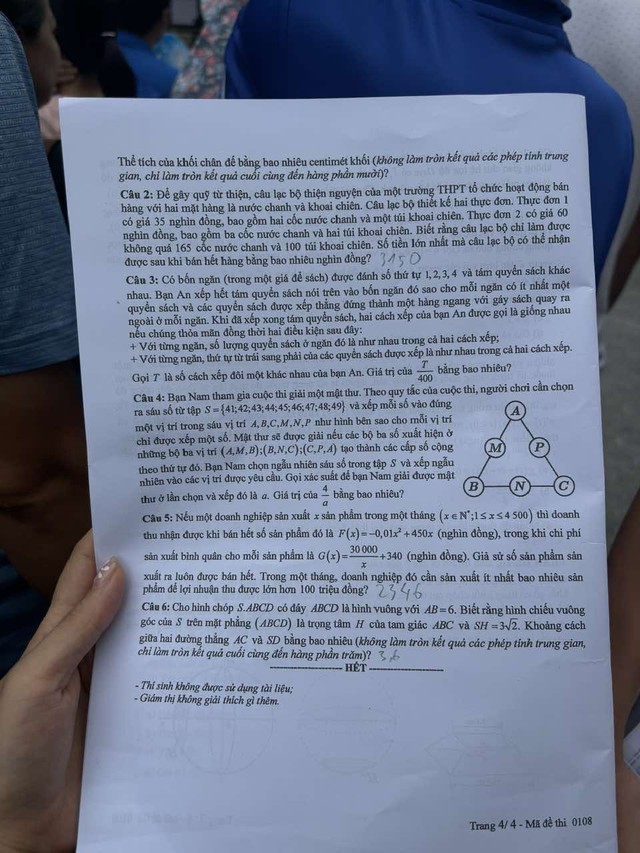 Thể tích của khối chân đế bằng bao nhiêu centimét khối (không làm tròn kết quả các phép tính trung
gian, chỉ làm tròn kết quả cuối cùng đến hàng phần mười)?
Câu 2: Để gây quỹ từ thiện, câu lạc bộ thiện nguyện của một trường THPT tổ chức hoạt động bán
hàng với hai mặt hàng là nước chanh và khoai chiên. Câu lạc bộ thiết kế hai thực đơn. Thực đơn 1
có giá 35 nghìn đồng, bao gồm hai cốc nước chanh và một túi khoai chiên. Thực đơn 2 có giá 60
nghìn đồng, bao gồm ba cốc nước chanh và hai túi khoai chiên. Biết rằng câu lạc bộ chỉ làm được
không quá 165 cốc nước chanh và 100 túi khoai chiên. Số tiền lớn nhất mà câu lạc bộ có thể nhận
được sau khi bán hết hàng bằng bao nhiêu nghìn đồng? 3150
Câu 3: Có bốn ngăn (trong một giá để sách) được đánh số thứ tự 1, 2, 3, 4 và tám quyển sách khác
nhau. Bạn An xếp hết tám quyển sách nói trên vào bốn ngăn đó sao cho mỗi ngăn có ít nhất một
quyển sách và các quyển sách được xếp thẳng đứng thành một hàng ngang với gáy sách quay ra
ngoài ở mỗi ngăn. Khi đã xếp xong tám quyển sách, hai cách xếp của bạn An được gọi là giống nhau
nếu chúng thỏa mãn đồng thời hai điều kiện sau đây:
+ Với từng ngăn, số lượng quyển sách ở ngăn đó là như nhau trong cả hai cách xếp;
+ Với từng ngăn, thứ tự từ trái sang phải của các quyển sách được xếp là như nhau trong cả hai cách xếp.
Gọi T là số cách xếp đôi một khác nhau của bạn An. Giá trị của T/400 bằng bao nhiêu?
Câu 4: Bạn Nam tham gia cuộc thi giải một mật thư. Theo quy tắc của cuộc thi, người chơi cần chọn
ra sáu số từ tập S = {41;42;43;44;45;46;47;48;49} và xếp mỗi số vào đúng
một vị trí trong sáu vị trí A,B,C,M,N,P như hình bên sao cho mỗi vị trí
chỉ được xếp một số. Mật thư sẽ được giải nếu các bộ ba số xuất hiện ở
những bộ ba vị trí (A,M,B);(B,N,C);(C,P,A) tạo thành các cấp số cộng
theo thứ tự đó. Bạn Nam chọn ngẫu nhiên sáu số trong tập S và xếp ngẫu
nhiên vào các vị trí được yêu cầu. Gọi xác suất để bạn Nam giải được mật
thư ở lần chọn và xếp đó là a. Giá trị của 4/a bằng bao nhiêu?
A
M P
B N C
Câu 5: Nếu một doanh nghiệp sản xuất x sản phẩm trong một tháng (x ∈ N*; 1 ≤ x ≤ 4 500) thì doanh
thu nhận được khi bán hết số sản phẩm đó là F(x) = −0,01x² + 450x (nghìn đồng), trong khi chi phí
sản xuất bình quân cho mỗi sản phẩm là G(x) = 30 000/x + 340 (nghìn đồng). Giả sử số sản phẩm sản
xuất ra luôn được bán hết. Trong một tháng, doanh nghiệp đó cần sản xuất ít nhất bao nhiêu sản
phẩm để lợi nhuận thu được lớn hơn 100 triệu đồng? 2346
Câu 6: Cho hình chóp S.ABCD có đáy ABCD là hình vuông với AB = 6. Biết rằng hình chiếu vuông
góc của S trên mặt phẳng (ABCD) là trọng tâm H của tam giác ABC và SH = 3√2. Khoảng cách
giữa hai đường thẳng AC và SD bằng bao nhiêu (không làm tròn kết quả các phép tính trung gian,
chỉ làm tròn kết quả cuối cùng đến hàng phần trăm)?
HẾT
- Thí sinh không được sử dụng tài liệu;
- Giám thị không giải thích gì thêm.
Trang 4/ 4 - Mã đề thi 0108